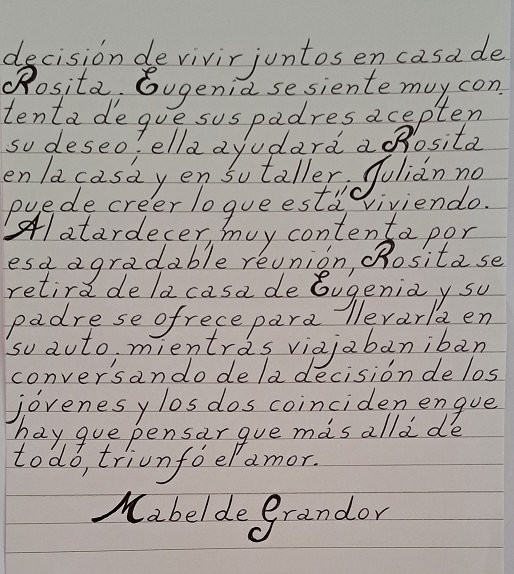 decisión de vivir juntos en casa de
Rosita. Eugenia se siente muy con.
tenta de que sus padres acepten
su deseo: ella ayudará a Rosita
en la casa y en su taller. Julián no
puede creer lo que está viviendo.
Al atardecer, muy contenta por
esa agradable reunión, Rosita se
retira de la casa de Eugenia y su
padre se ofrece para llevarla en
su auto, mientras viajaban iban
conversando de la decisión de los
jóvenes y los dos coinciden en que
hay que pensar que más allá de
todo, triunfó el amor.
Mabel de Grandov